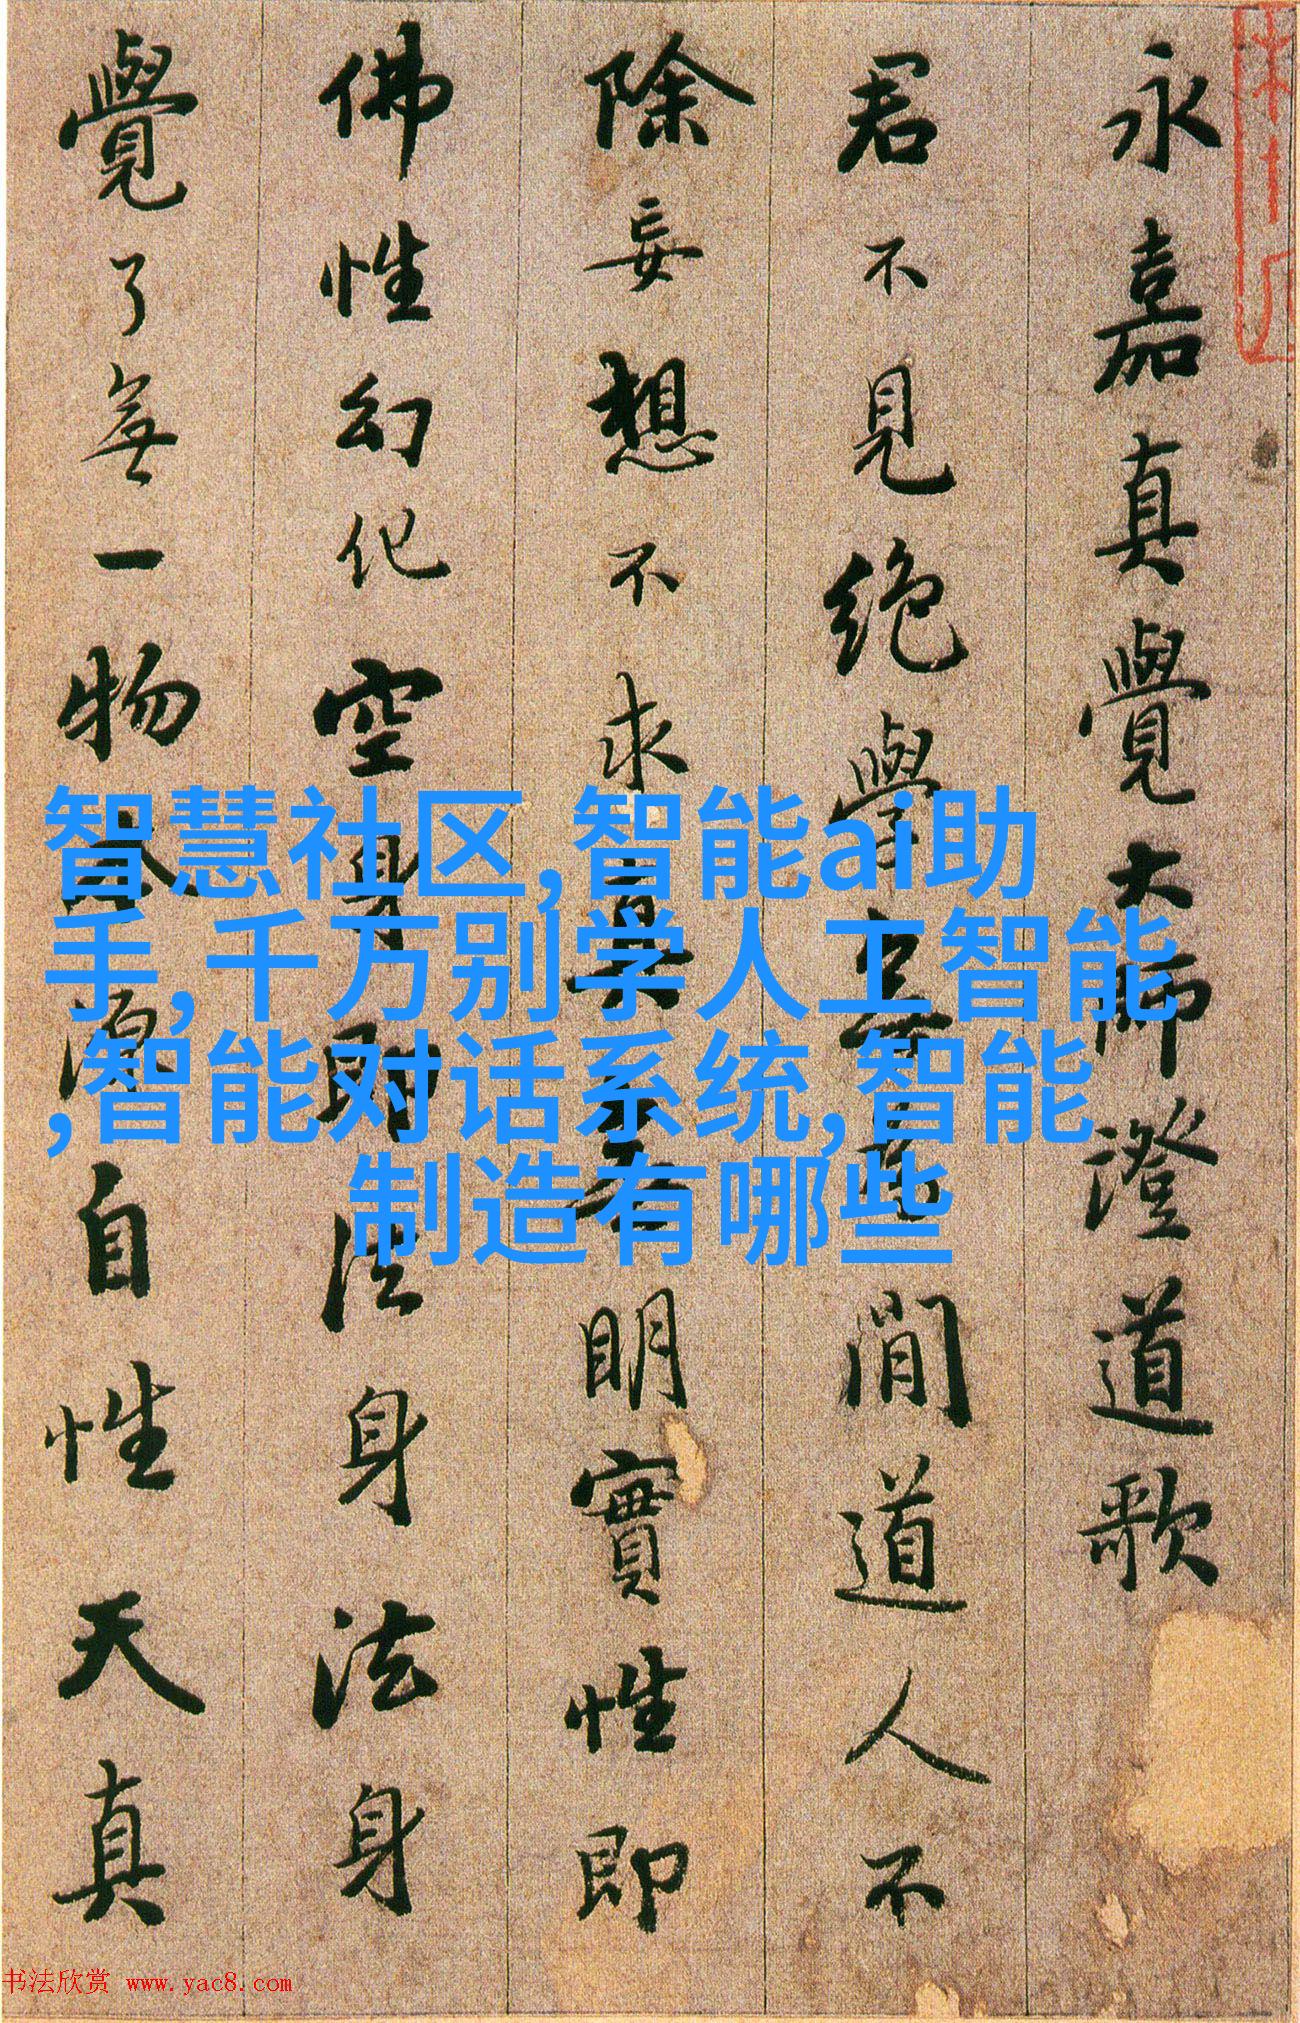 永嘉真覺大師澄道歌
君不見絕學無為閒道人不
除妄想不求真無明實性即
佛性幻化空身即法身法身
覺了無一物本源自性天真
智慧社区,智能ai助
手,千万别学人工智能
,智能对话系统,智能
制造有哪些
书法欣赏 www.yac8.com